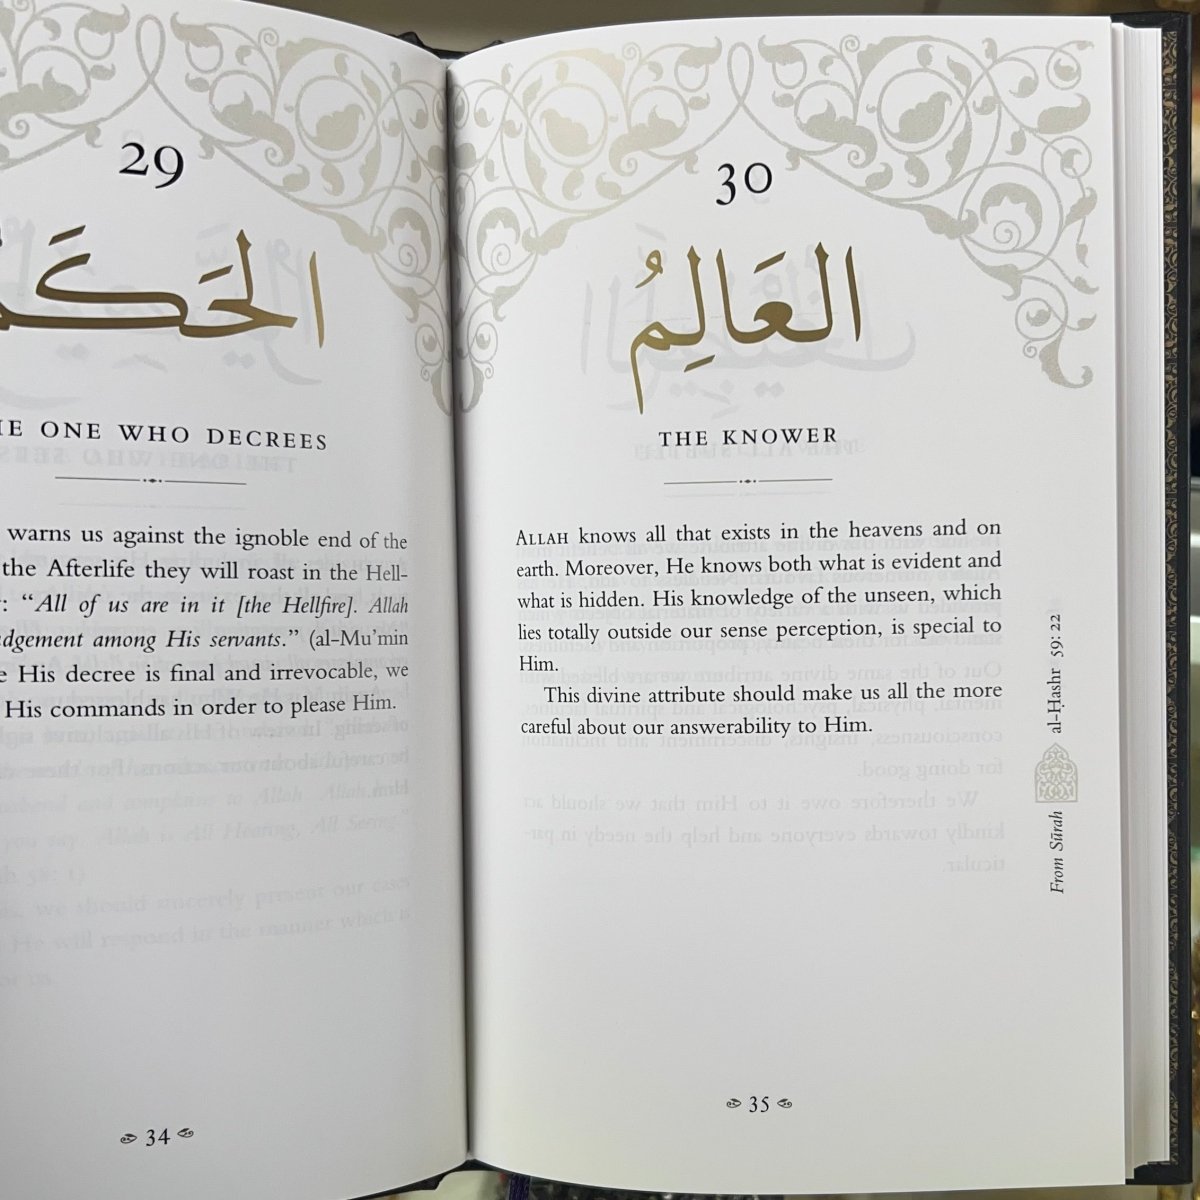 29
الحَكَ
E ONE WHO DECREES
warns us against the ignoble end of the
the Afterlife they will roast in the Hell-
: “All of us are in it [the Hellfire]. Allah
among His servants.” (al-Mu’min
His decree is final and irrevocable, we
His commands in order to please Him.
34
30
العَالِمُ
THE KNOWER
ALLAH knows all that exists in the heavens and on
earth. Moreover, He knows both what is evident and
what is hidden. His knowledge of the unseen, which
lies totally outside our sense perception, is special to
Him.
This divine attribute should make us all the more
careful about our answerability to Him.
From Sūrah al-Ḥashr 59: 22
35